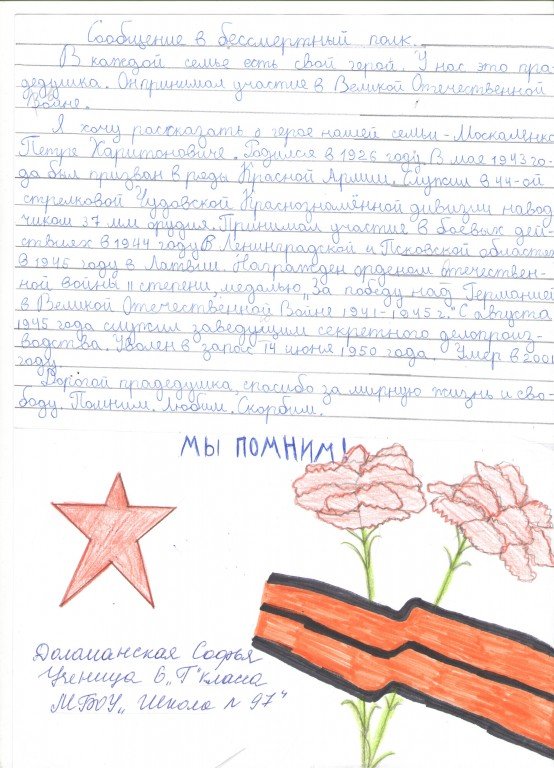 Сообщение в бессмертный полк.
В каждой семье есть свой герой. У нас это пра-
дедушка. Он принимал участие в Великой Отечественной
Войне.
Я хочу рассказать о герое нашей семьи - Москаленко
Петре Харитоновиче. Родился в 1926 году. В мае 1943 го-
да был призван в ряды Красной Армии. Служил в 44-ой
стрелковой Чудовской Краснознамённой дивизии навод-
чиком 37 мм орудия. Принимал участие в боевых дей-
ствиях в 1944 году в Ленинградской и Псковской областях
В 1945 году в Латвии. Награжден орденом отечествен-
ной войны II степени, медалью „За победу над Германией
в Великой Отечественной Войне 1941-1945 г." С августа
1945 года служил заведущим секретного делопроиз-
водства. Уволен в запас 14 июня 1950 года. Умер в 2001
году.
Дорогой прадедушка, спасибо за мирную жизнь и сво-
боду. Помним. Любим. Скорбим.
МЫ ПОМНИМ!
Доломанская Софья
Ученица 6 „Г" класса
МБОУ „Школа № 97"